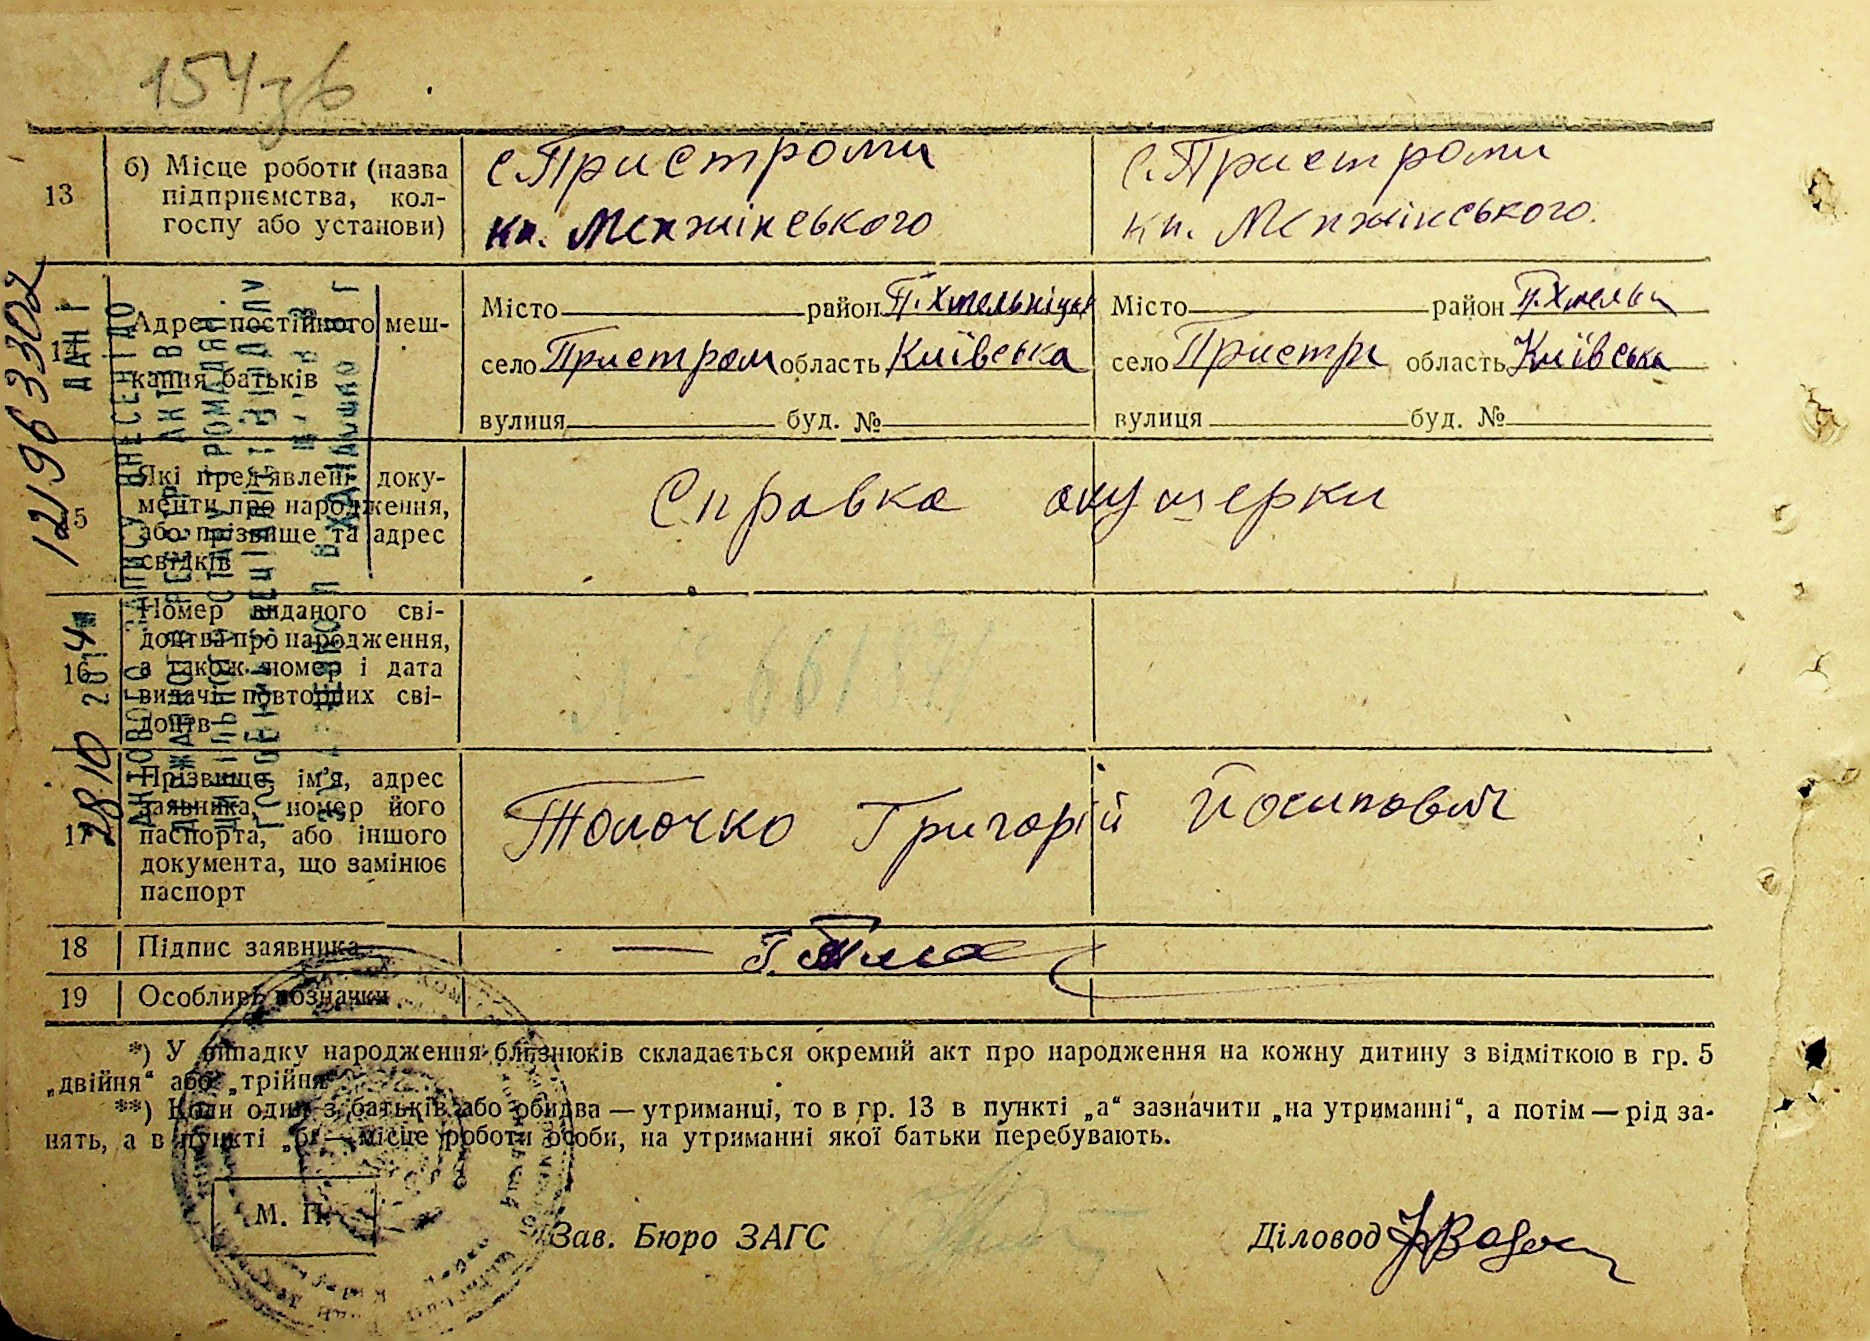 154зв
13 б) Місце роботи (назва підприємства, кол-
госпу або установи)
с. Пристроми
кп. Менжінського
с. Пристроми
кп. Менжінського.
Адрес постійного меш-
кання батьків
Місто район П. Хмельніцьк
село Пристром область Київська
вулиця буд. №
Місто район П. Хмельн
село Пристр область Київська
вулиця буд. №
Які пред'явлені доку-
менти про народження,
або прізвище та адрес
свідків
Справка акушерки
16 Номер виданого сві-
доцтва про народження,
а також номер і дата
видачі повторних сві-
доцтв
17 Прізвище, ім'я, адрес
заявника, номер його
паспорта, або іншого
документа, що замінює
паспорт
Толочко Григорій Йосипович
18 Підпис заявника
19 Особливі позначки
*) У випадку народження близнюків складається окремий акт про народження на кожну дитину з відміткою в гр. 5
„двійня“ або „трійня“
**) Коли один з батьків або обидва — утриманці, то в гр. 13 в пункті „а“ зазначити „на утриманні“, а потім — рід за-
нять, а в пункті „б“ — місце роботи особи, на утриманні якої батьки перебувають.
М. П.
Зав. Бюро ЗАГС
Діловод
ДАНІ
АКТОВОГО ЗАПИСУ ВНЕСЕНІ ДО
ДЕРЖАВНОГО РЕЄСТРУ АКТІВ
ЦИВІЛЬНОГО СТАНУ ГРОМАДЯН.
ГОЛОВНИЙ СПЕЦІАЛІСТ ВІДДІЛУ
28 10 2014